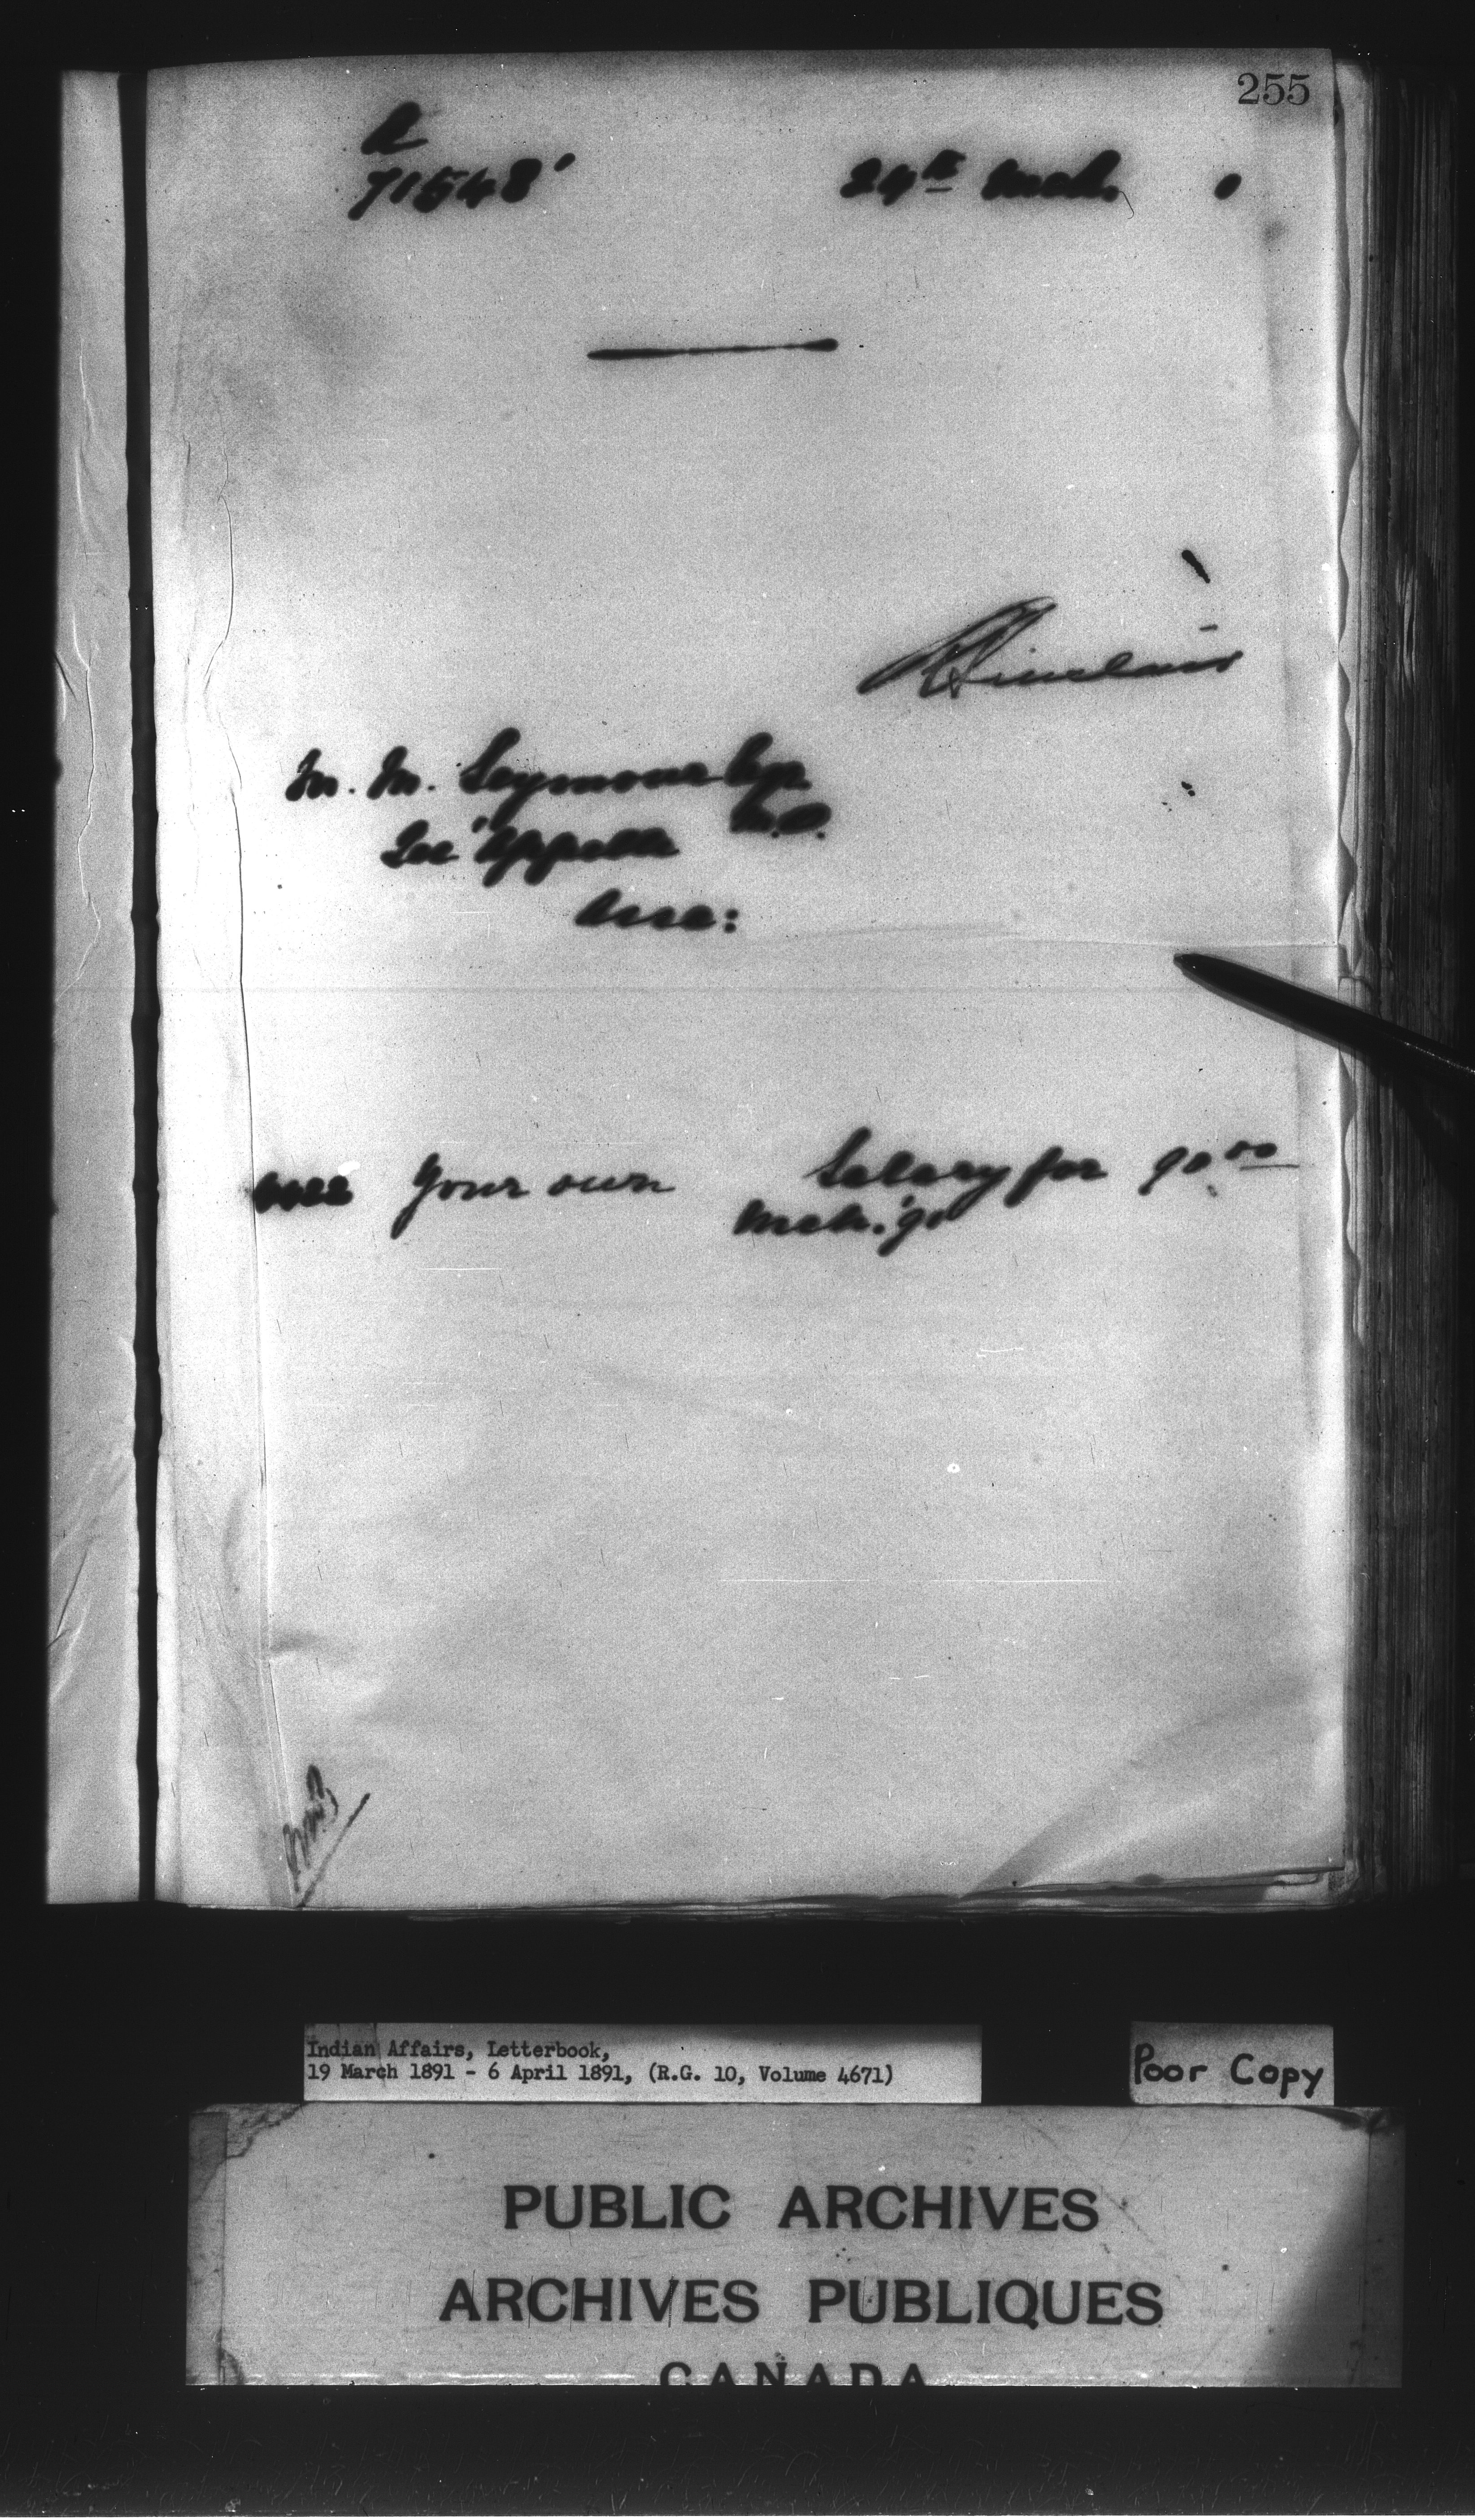 255
A
71548
24th Mch.
Sinclair
M. M. Seymour Esq
M.D.
Qu'Appelle
Assa:
Your own Salary for 90 00
Mch. '91
Indian Affairs, Letterbook,
19 March 1891 - 6 April 1891, (R.G. 10, Volume 4671)
Poor Copy
PUBLIC ARCHIVES
ARCHIVES PUBLIQUES
CANADA